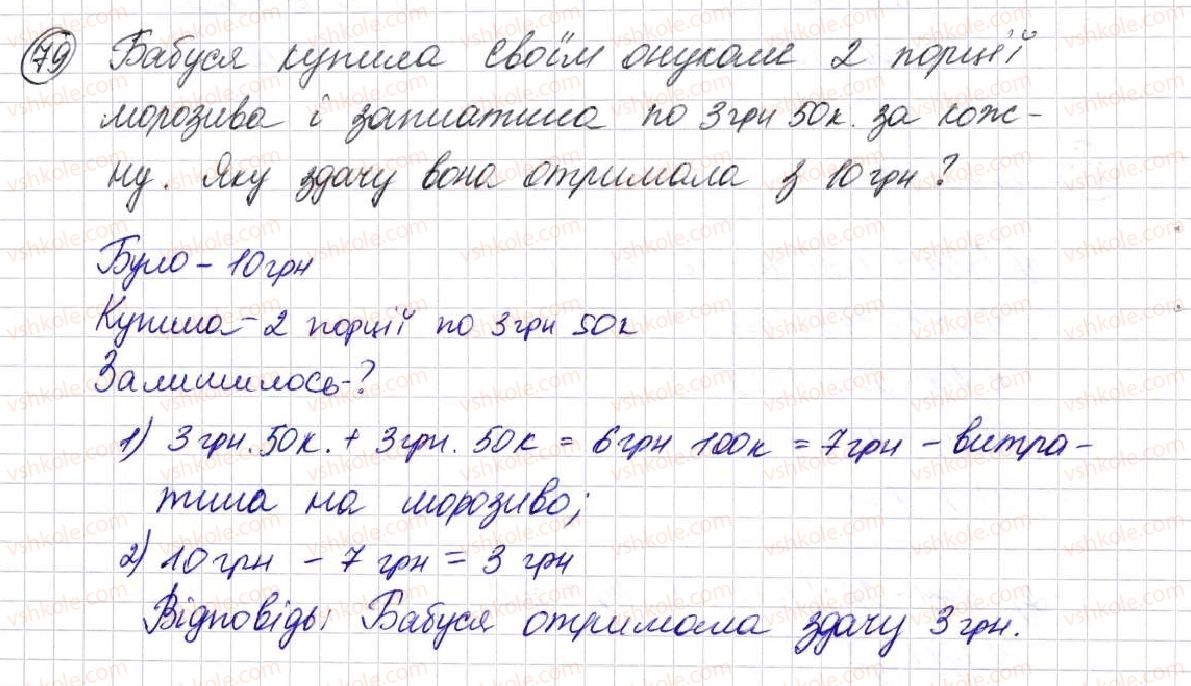 79 Бабуся купила своїм онукам 2 порції
морозива і заплатила по 3грн 50к. за кож-
ну. Яку здачу вона отримала з 10грн?
Було - 10грн
Купила - 2 порції по 3грн 50к
Залишилось - ?
1) 3грн. 50к. + 3грн. 50к = 6грн 100к = 7грн - витра-
тила на морозиво;
2) 10грн - 7грн = 3грн
Відповідь: Бабуся отримала здачу 3грн.